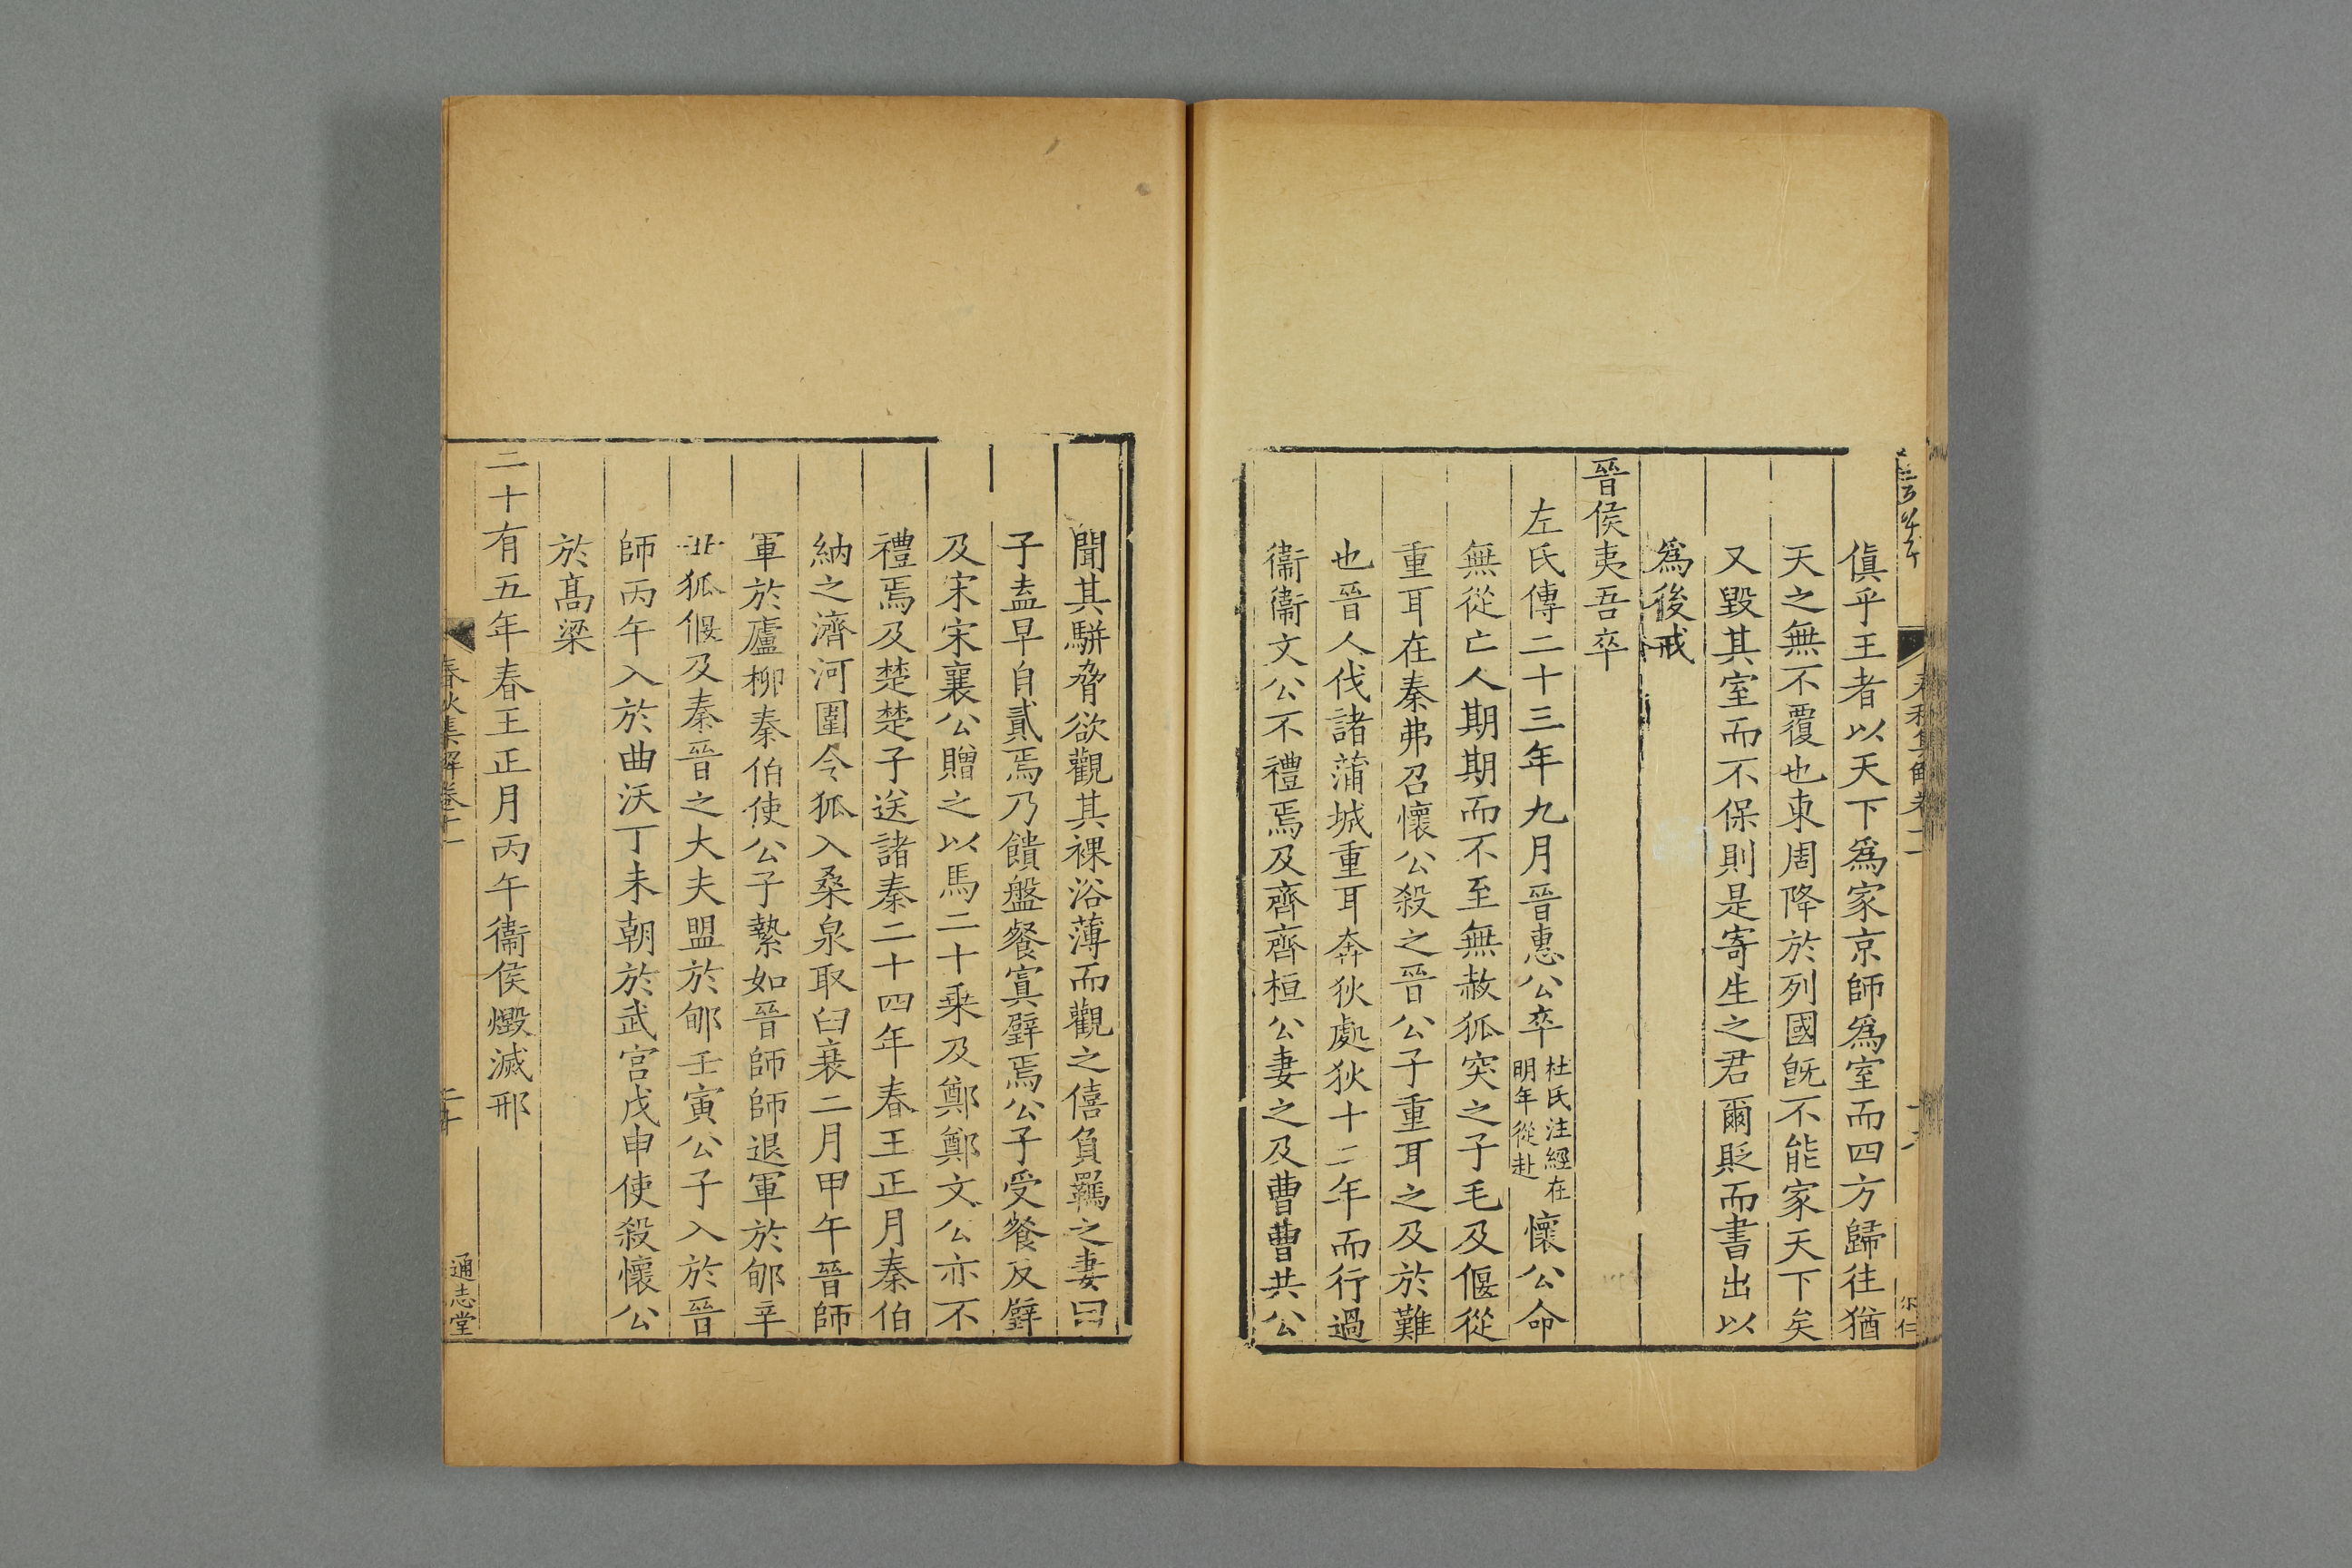 傎乎王者以天下爲家京師爲室而四方歸往猶
天之無不覆也東周降於列國旣不能家天下矣
又毀其室而不保則是寄生之君爾貶而書出以
爲後戒
晉侯夷吾卒
左氏傳二十三年九月晉惠公卒杜氏注經在明年從赴懷公命
無從亡人期期而不至無赦狐突之子毛及偃從
重耳在秦弗召懷公殺之晉公子重耳之及於難
也晉人伐諸蒲城重耳奔狄處狄十二年而行過
衞衞文公不禮焉及齊齊桓公妻之及曹曹共公
聞其駢脅欲觀其裸浴薄而觀之僖負羈之妻曰
子盍早自貳焉乃饋盤餐寘璧焉公子受餐反璧
及宋宋襄公贈之以馬二十乗及鄭鄭文公亦不
禮焉及楚楚子送諸秦二十四年春王正月秦伯
納之濟河圍令狐入桑泉取臼衰二月甲午晉師
軍於廬柳秦伯使公子縶如晉師師退軍於郇辛
丑狐偃及秦晉之大夫盟於郇壬寅公子入於晉
師丙午入於曲沃丁未朝於武宮戊申使殺懷公
於髙梁
二十有五年春王正月丙午衞侯燬滅邢
春秋集解卷十二
通志堂